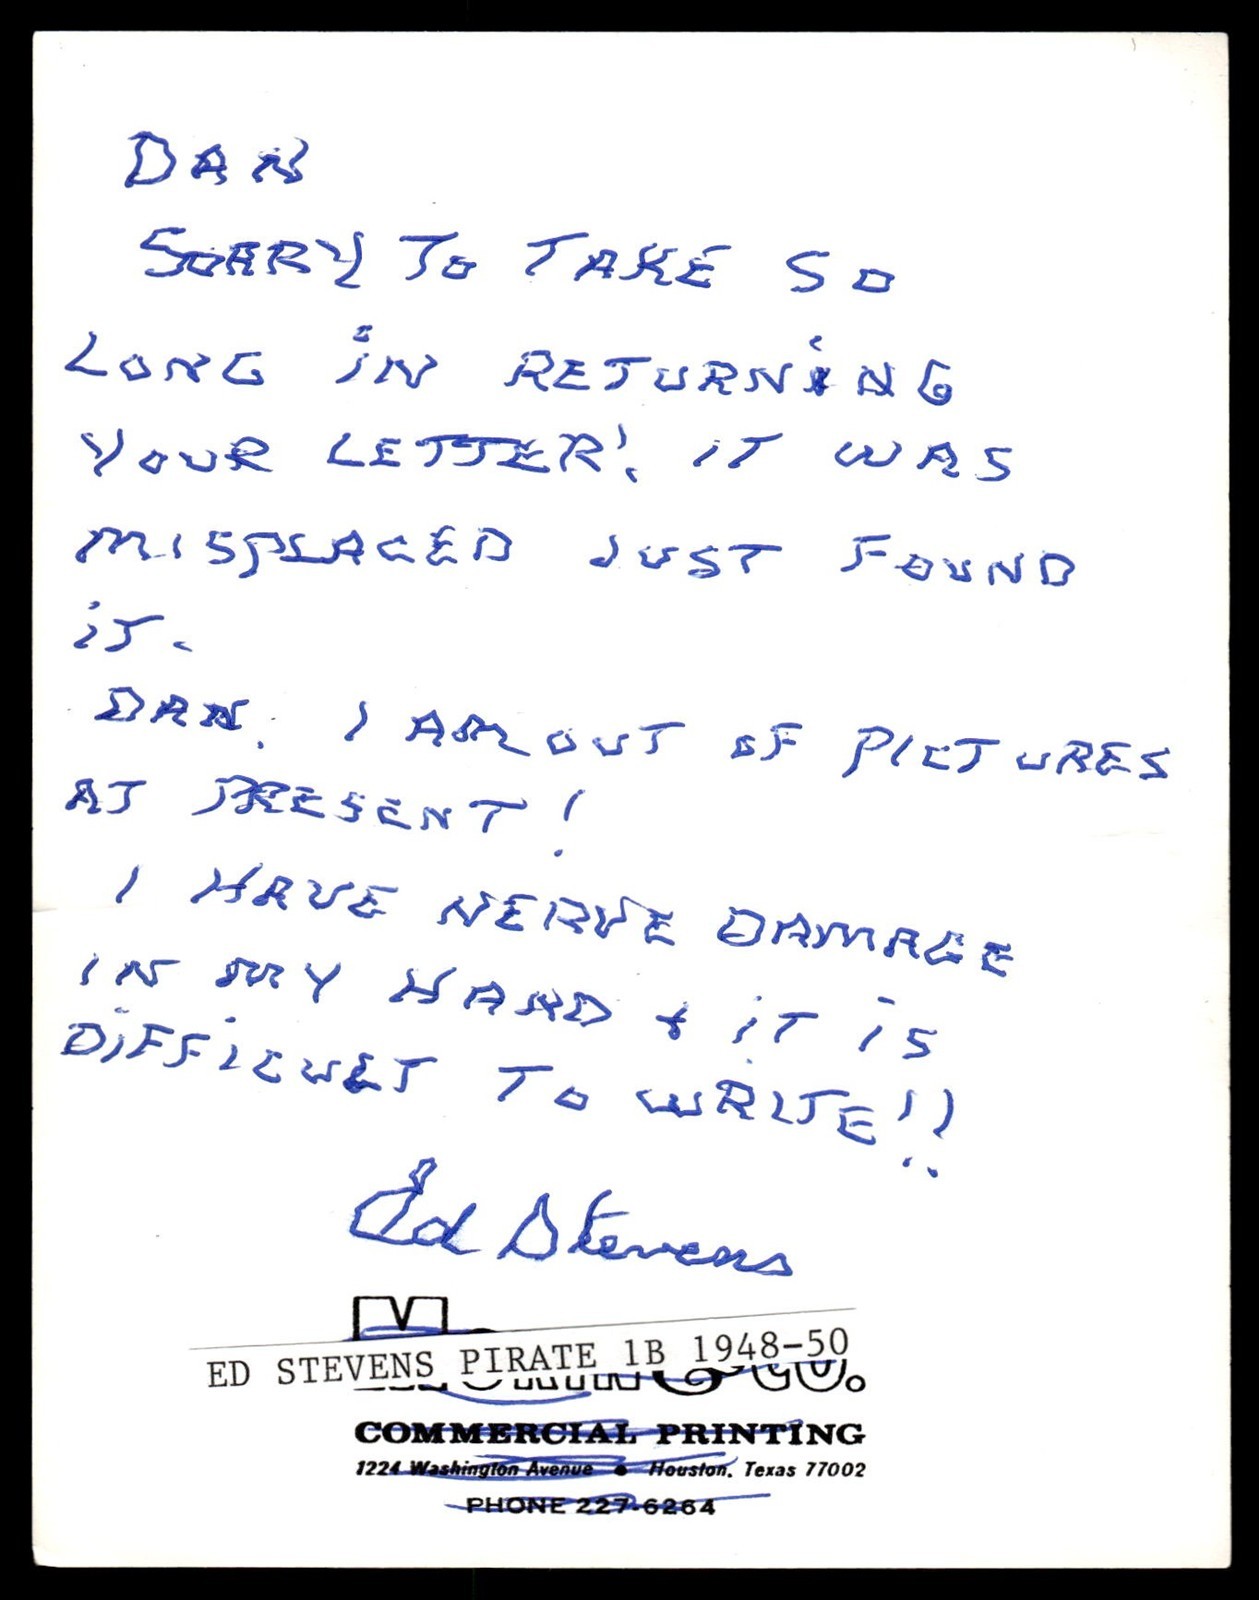 DAN
SORRY TO TAKE SO
LONG iN RETURNiNG
YOUR LETTER! iT WAS
MISPLACED JUST FOUND
iT.
DAN. I AM OUT OF PICTURES
AT PRESENT!
I HAVE NERVE DAMAGE
IN MY HAND & iT iS
DiFFiCULT TO WRITE!!
Ed Stevens
ED STEVENS PIRATE 1B 1948-50
CO.
COMMERCIAL PRINTING
1224 Washington Avenue • Houston, Texas 77002
PHONE 227-6264